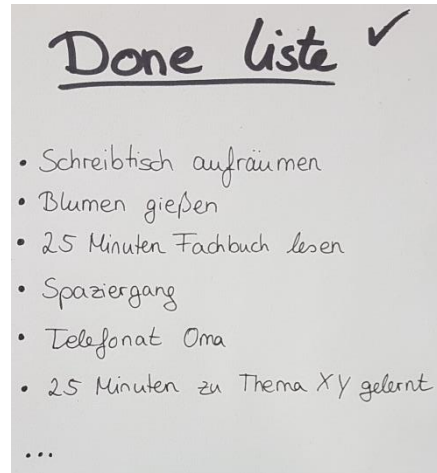 Done Liste ✓
• Schreibtisch aufräumen
• Blumen gießen
• 25 Minuten Fachbuch lesen
• Spaziergang
• Telefonat Oma
• 25 Minuten zu Thema XY gelernt
...